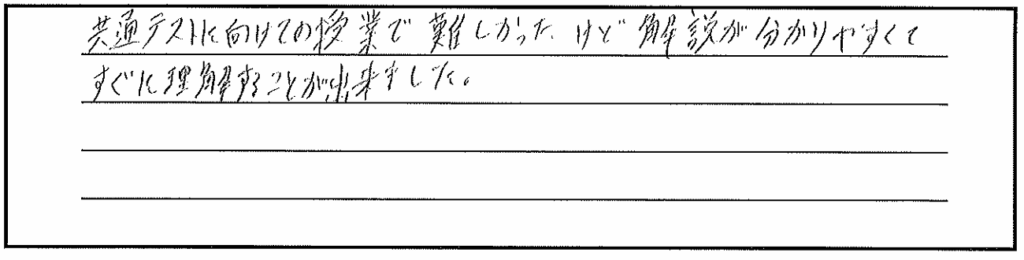 共通テストに向けての授業で難しかったけど解説が分かりやすくて
すぐに理解することが出来ました。